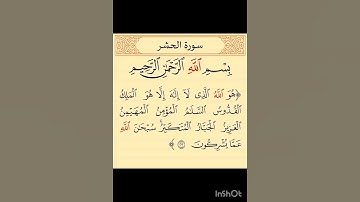 سورة الحشر
بِسْمِ اللَّهِ الرَّحْمَٰنِ الرَّحِيمِ
﴿هُوَ اللَّهُ الَّذِي لَا إِلَٰهَ إِلَّا هُوَ الْمَلِكُ
الْقُدُّوسُ السَّلَامُ الْمُؤْمِنُ الْمُهَيْمِنُ
الْعَزِيزُ الْجَبَّارُ الْمُتَكَبِّرُ سُبْحَٰنَ اللَّهِ
عَمَّا يُشْرِكُونَ ﴾
InShOt